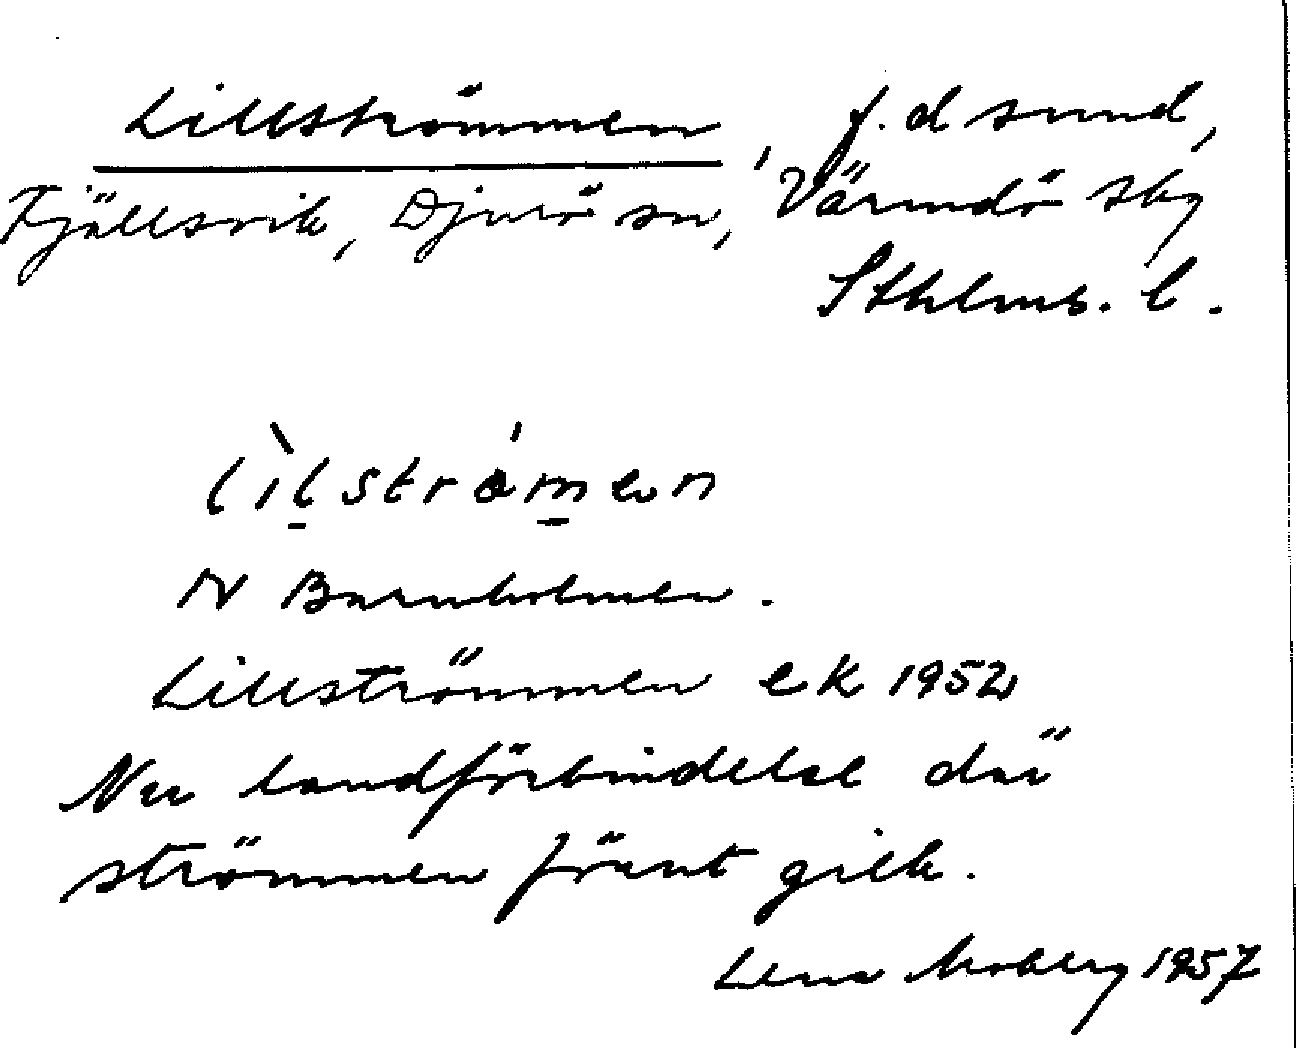 Lillströmmen f.d sund,
Fjällsvik, Djurö sn, Värmdö skg
Sthlms. l.
lìlstrǿmen
N Barnholmen.
Lillströmmen ek 1952
Nu landförbindelse där
strömmen förut gick.
Lena Moberg 1957